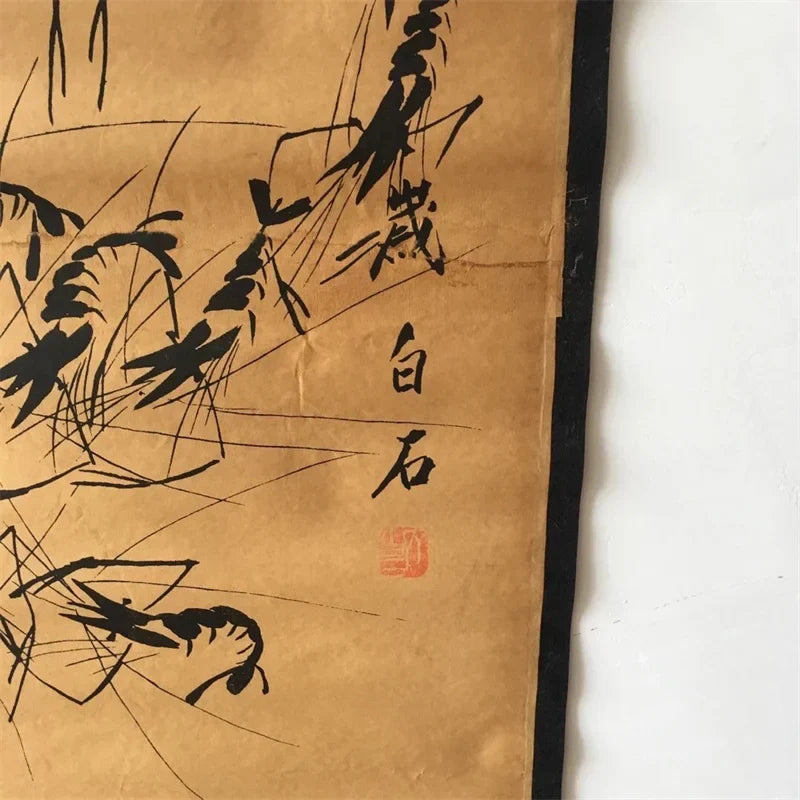 歲
白石